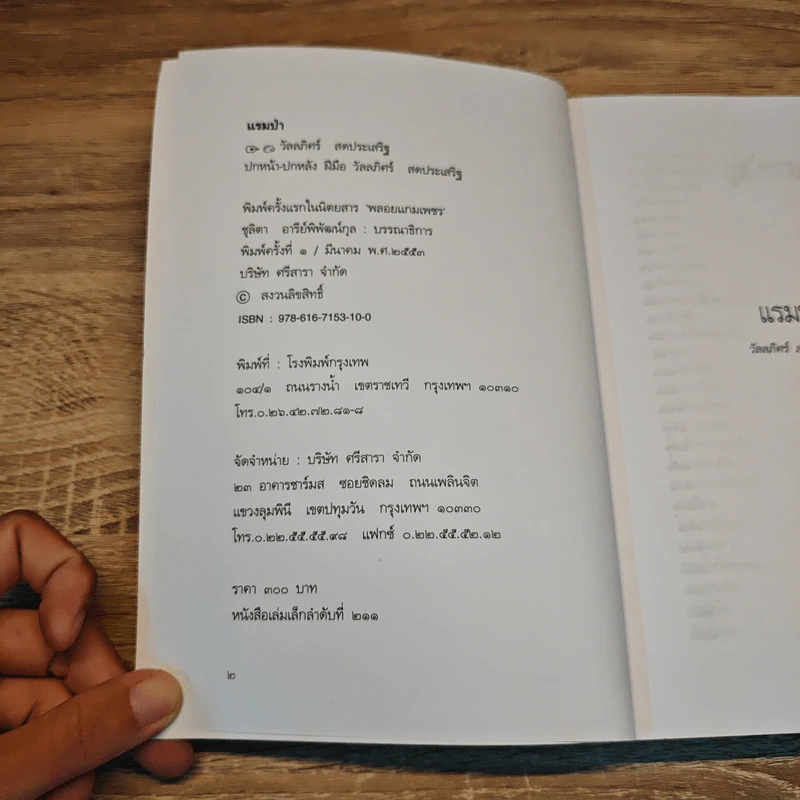 แรมป่า
๑-๗ วัลลภิศร์ สดประเสริฐ
ปกหน้า-ปกหลัง ฝีมือ วัลลภิศร์ สดประเสริฐ
พิมพ์ครั้งแรกในนิตยสาร 'พลอยแกมเพชร'
ชุลิตา อารีย์พิพัฒน์กุล : บรรณาธิการ
พิมพ์ครั้งที่ ๑ / มีนาคม พ.ศ.๒๕๕๓
บริษัท ศรีสารา จำกัด
© สงวนลิขสิทธิ์
ISBN : 978-616-7153-10-0
พิมพ์ที่ : โรงพิมพ์กรุงเทพ
๑๐๔/๑ ถนนรางน้ำ เขตราชเทวี กรุงเทพฯ ๑๐๓๑๐
โทร.๐.๒๖.๔๒.๗๒.๘๑-๘
จัดจำหน่าย : บริษัท ศรีสารา จำกัด
๒๓ อาคารชาร์มส ซอยชิดลม ถนนเพลินจิต
แขวงลุมพินี เขตปทุมวัน กรุงเทพฯ ๑๐๓๓๐
โทร.๐.๒๒.๕๕.๕๕.๙๘ แฟกซ์ ๐.๒๒.๕๕.๕๒.๑๒
ราคา ๓๐๐ บาท
หนังสือเล่มเล็กลำดับที่ ๒๑๑
๒
แรม
วัลลภิศร์ ส